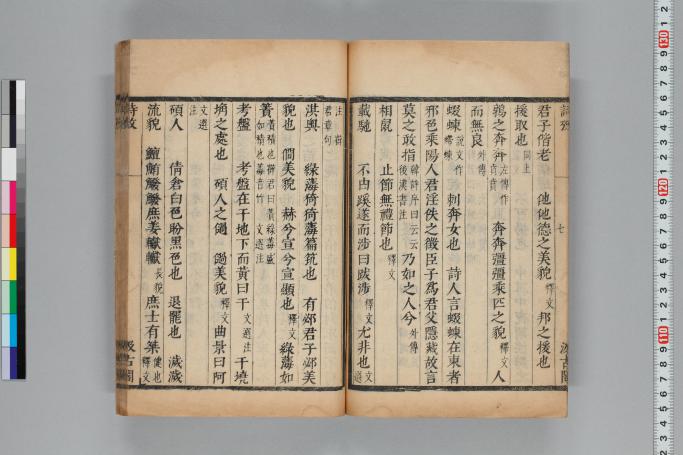 君子偕老　他他德之美貌 釋文　邦之援也
援取也 同上
鶉之奔奔 左傳作賁賁　奔奔彊彊乘匹之貌 釋文　人
而無良 外傳
蝃蝀 說文作螮蝀　刺奔女也　詩人言蝃蝀在東者
邪色乘陽人君淫佚之徵臣子為君父隱藏故言
莫之敢指 韓詩序曰云云後漢書注　乃如之人兮 外傳
相鼠　止節無禮節也 釋文
載馳　不由蹊遂而涉曰跋涉 釋文　尤非也 文選
注 韓君章句
淇奧　綠薄猗猗薄萹筑也　有邲君子邲美
貌也　僩美貌　赫兮宣兮宣顯也 釋文　綠薄如
簀
考盤　考盤在干地下而黃曰干 文選注　干墝
埆之處也　碩人之𨓈　𨓈美貌 釋文　曲景曰阿
文選注
碩人　倩蒼白色　盼黑色也　退罷也　濊濊
流貌　鱣鮪鱍鱍庶姜轍轍 長貌　庶士有桀 健也釋文
詩攷
汲古閣
七